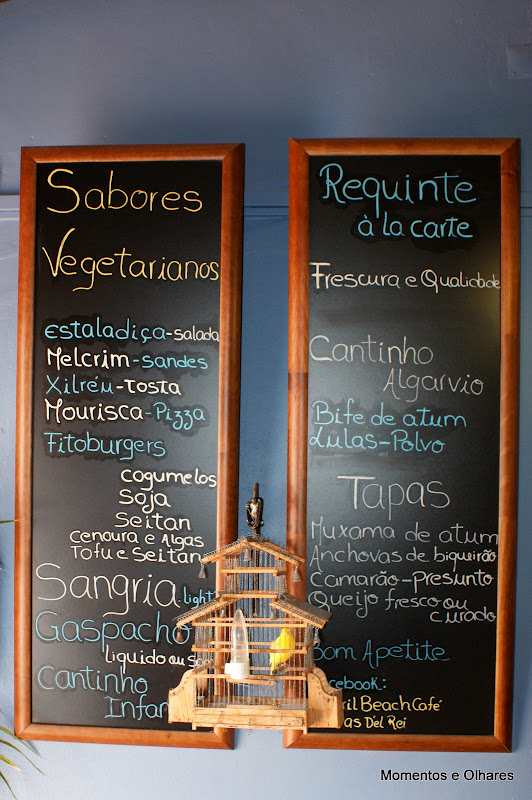 Sabores
Vegetarianos
Estaladiça-salada
Melcrim-sandes
Xilréu-Tosta
Mourisca-Pizza
Fitoburgers
cogumelos
Soja
Seitan
cenoura e Algas
Tofu e Seitan
Sangria.light
Gaspacho
liquido ou
Cantinho
Requinte
à la carte
Frescura e Qualidade
Cantinho
Algarvio
Bife de atum
Lulas-Polvo
Tapas
Muxama de atum
Anchovas de biqueirão
Camarão-Presunto
Queijo fresco ou
curado
Bom Apetite
Beach Café
Del Rei
Momentos e Olhares